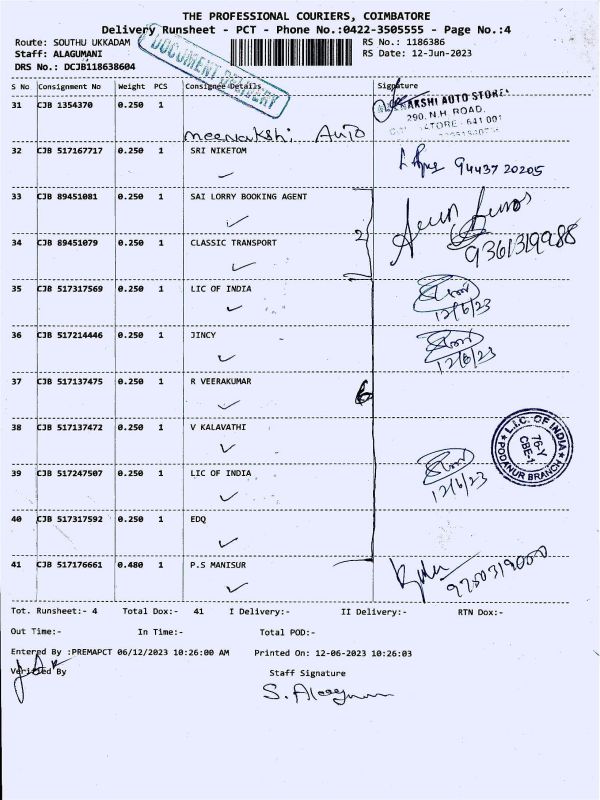 THE PROFESSIONAL COURIERS, COIMBATORE
Delivery Runsheet - PCT - Phone No.:0422-3505555 - Page No.:4
Route: SOUTHU UKKADAM
RS No.: 1186386
Staff: ALAGUMANI
RS Date: 12-Jun-2023
DRS No.: DCJB118638604
DOCUMENT DELIVERY
S No Consignment No Weight PCS Consignee Details Signature
31 CJB 1354370 0.250 1
Meenakshi Auto
MEENAKSHI AUTO STORE
290, N.H. ROAD,
641 001
32 CJB 517167717 0.250 1 SRI NIKETOM
94437 20205
33 CJB 89451081 0.250 1 SAI LORRY BOOKING AGENT
34 CJB 89451079 0.250 1 CLASSIC TRANSPORT
2
9361319988
35 CJB 517317569 0.250 1 LIC OF INDIA
12/6/23
36 CJB 517214446 0.250 1 JINCY
12/6/23
37 CJB 517137475 0.250 1 R VEERAKUMAR
6
38 CJB 517137472 0.250 1 V KALAVATHI
L.I.C. OF INDIA
76-Y
CBE-1
PODANUR BRANCH
39 CJB 517247507 0.250 1 LIC OF INDIA
12/6/23
40 CJB 517317592 0.250 1 EDQ
41 CJB 517176661 0.480 1 P.S MANISUR
Tot. Runsheet:- 4 Total Dox:- 41 I Delivery:- II Delivery:- RTN Dox:-
Out Time:- In Time:- Total POD:-
Entered By :PREMAPCT 06/12/2023 10:26:00 AM Printed On: 12-06-2023 10:26:03
Verified By Staff Signature